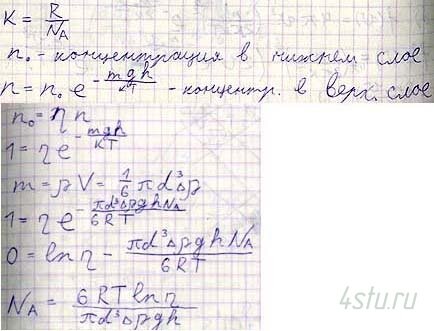 K = R/N_A
n₀ - концентрация в нижнем слое
n = n₀ e^(-mgh/KT) - концентр. в верх. слое
n₀ = ηn
1 = η e^(-mgh/KT)
m = ρV = 1/6 πd³Δρ
1 = η e^(-πd³Δρgh N_A/6RT)
0 = ln η - πd³Δρgh N_A/6RT
N_A = 6RT ln η/πd³Δρgh
4stu.ru